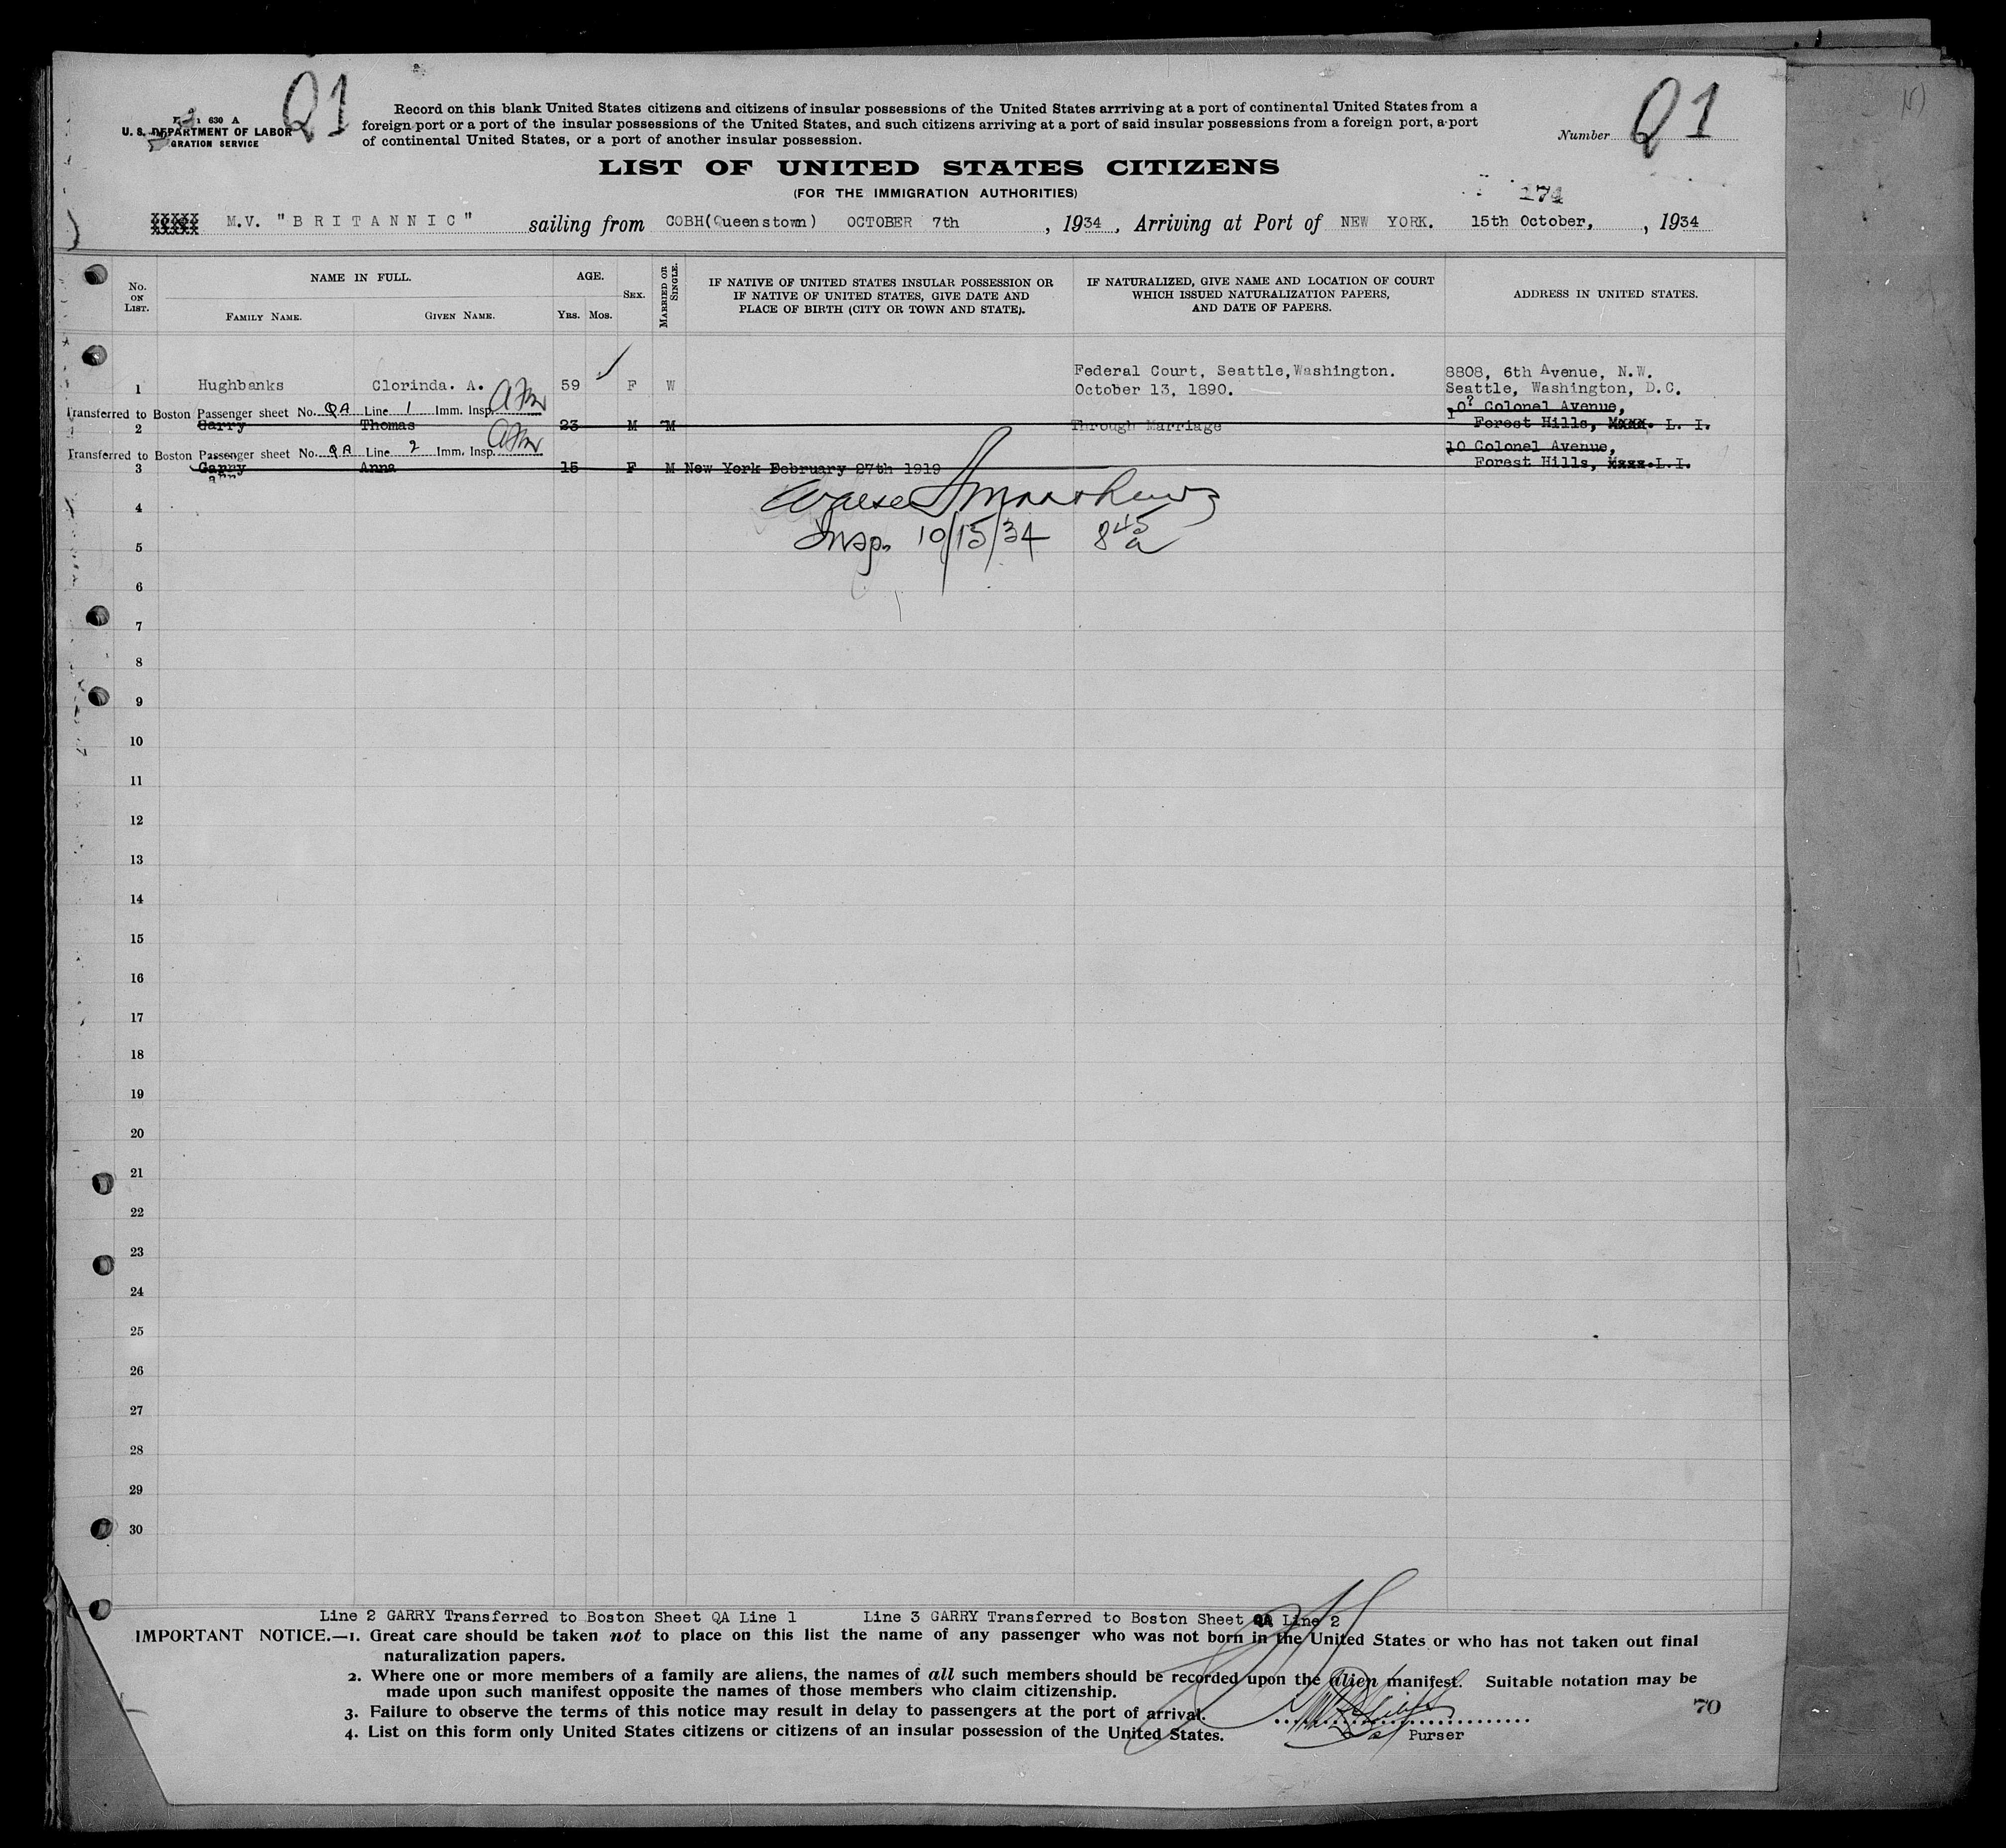 Q1
630 A
U. S. DEPARTMENT OF LABOR
GRATION SERVICE
Record on this blank United States citizens and citizens of insular possessions of the United States arrriving at a port of continental United States from a
foreign port or a port of the insular possessions of the United States, and such citizens arriving at a port of said insular possessions from a foreign port, a port
of continental United States, or a port of another insular possession.
Number Q1
LIST OF UNITED STATES CITIZENS
(FOR THE IMMIGRATION AUTHORITIES)
174
M.V. "BRITANNIC" sailing from COBH(Queenstown) OCTOBER 7th, 1934, Arriving at Port of NEW YORK. 15th October, , 1934
No. ON LIST.
NAME IN FULL.
FAMILY NAME. GIVEN NAME.
AGE.
YRS. MOS.
SEX.
MARRIED OR SINGLE.
IF NATIVE OF UNITED STATES INSULAR POSSESSION OR
IF NATIVE OF UNITED STATES, GIVE DATE AND
PLACE OF BIRTH (CITY OR TOWN AND STATE).
IF NATURALIZED, GIVE NAME AND LOCATION OF COURT
WHICH ISSUED NATURALIZATION PAPERS,
AND DATE OF PAPERS.
ADDRESS IN UNITED STATES.
Federal Court, Seattle,Washington. 8808, 6th Avenue, N.W.
1 Hughbanks Clorinda. A. 59 F W October 13, 1890. Seattle, Washington, D.C.
Transferred to Boston Passenger sheet No. QA Line 1 Imm. Insp. Colonel Avenue,
2 Garry Thomas 23 M M Through Marriage Forest Hills, L. I.
Transferred to Boston Passenger sheet No. QA Line 2 Imm. Insp. 10 Colonel Avenue,
3 Garry Anna 15 F M New York February 27th 1919 Forest Hills, L.I.
4
Insp. 10/15/34 8 45 a
5
6
7
8
9
10
11
12
13
14
15
16
17
18
19
20
21
22
23
24
25
26
27
28
29
30
Line 2 GARRY Transferred to Boston Sheet QA Line 1 Line 3 GARRY Transferred to Boston Sheet QA Line 2
IMPORTANT NOTICE.—1. Great care should be taken not to place on this list the name of any passenger who was not born in the United States or who has not taken out final
naturalization papers.
2. Where one or more members of a family are aliens, the names of all such members should be recorded upon the alien manifest. Suitable notation may be
made upon such manifest opposite the names of those members who claim citizenship.
3. Failure to observe the terms of this notice may result in delay to passengers at the port of arrival.
4. List on this form only United States citizens or citizens of an insular possession of the United States.
Purser
70